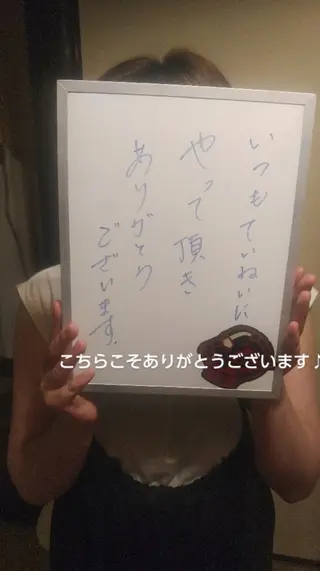 いつもていねいに
やって頂き
ありがとう
ございます.
こちらこそありがとうございます♪